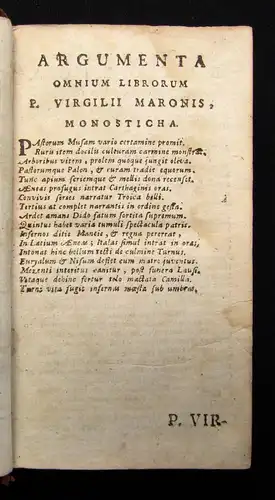 ARGUMENTA
OMNIUM LIBRORUM
P. VIRGILII MARONIS,
MONOSTICHA.
PAstorum Musam vario certamine promit.
Ruris item docilis culturam carmine monstrat,
Arboribus vites, prolem quoque jungit oliva.
Pastorumque Palen, & curam tradit equorum.
Tunc apium seriemque & mellis dona recenset.
Æneas profugus intrat Carthaginis oras.
Convivis series narratur Troica belli.
Tertius at complet narrantis in ordine gesta.
Ardet amans Dido fatum sortita supremum.
Quintus habet varia tumuli spectacula patris.
Infernos ditis Maneis, & regna pererrat,
In Latium Æneas; Italas simul intrat in oras,
Intonat hinc bellum tecti de culmine Turnus.
Euryalum & Nisum deflet cum matre juventus.
Mezenti interitus canitur, post funera Lausi.
Vitaque dehinc fertur telo mactata Camilla.
Turni vita fugit infernas mæsta sub umbras.
P. VIR-